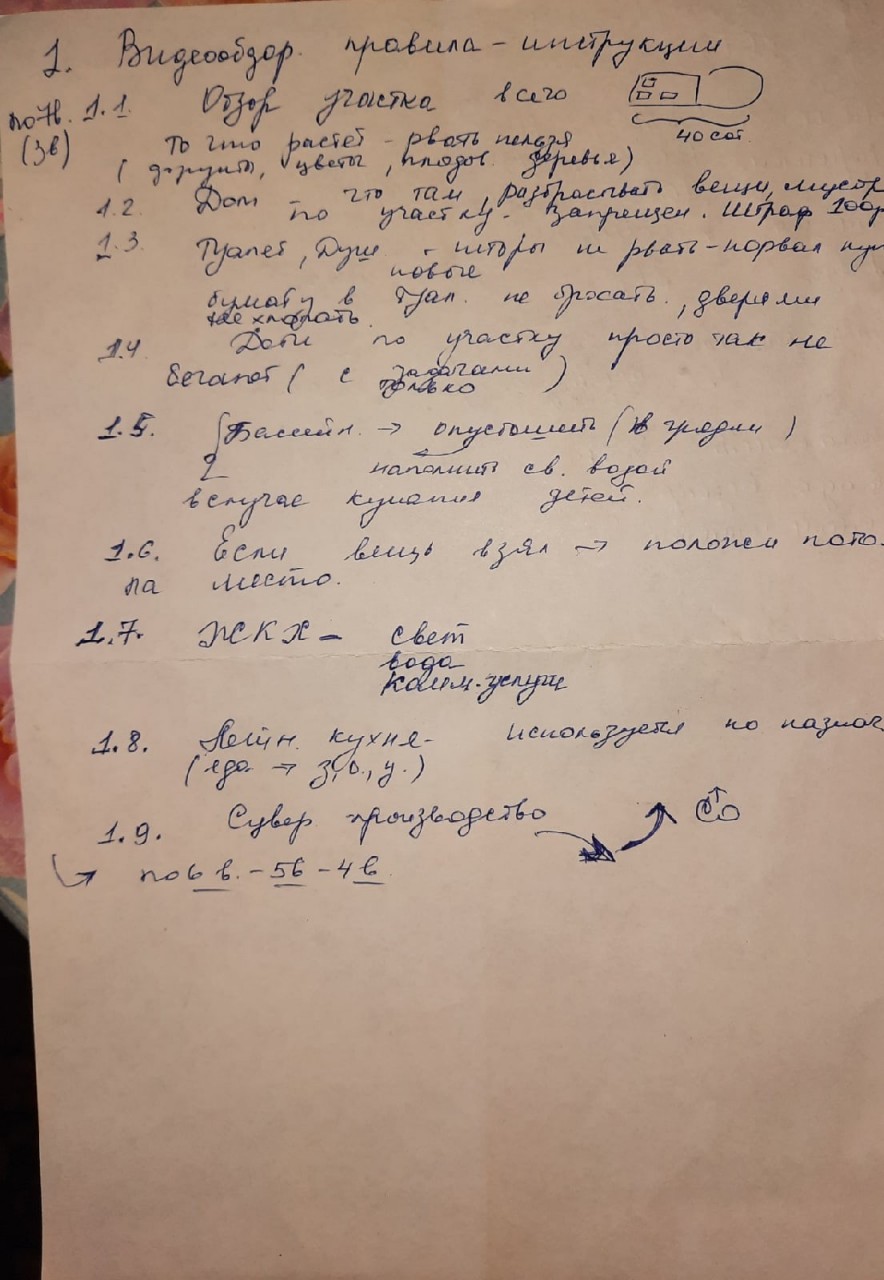 1. Видеообзор. правила - инструкции
по Н. 1.1 Обзор участка всего
(3в) 40 сот.
То что растет - рвать нельзя
( фрукты, цветы, плодов. деревья)
1.2. Дом - что там, разбрасывать вещи,
по участку - запрещен. Штраф 100р
1.3 Туалет, Душ - шторы не рвать - порвал
новые
бумагу в туал. не бросать, дверями
не хлопать.
1.4. Дети по участку просто так не
бегают ( с задачами
только )
1.5. Бассейн. → опустошить ( в грядки )
наполнить св. водой
в случае купания детей.
1.6. Если вещь взял → положи
на место.
1.7. ЖКХ - свет
вода
комм. услуги
1.8. Летн. кухня - используется по
(еда → з, о., у.)
1.9. Сувер производство
по 6 в. - 5в - 4 в